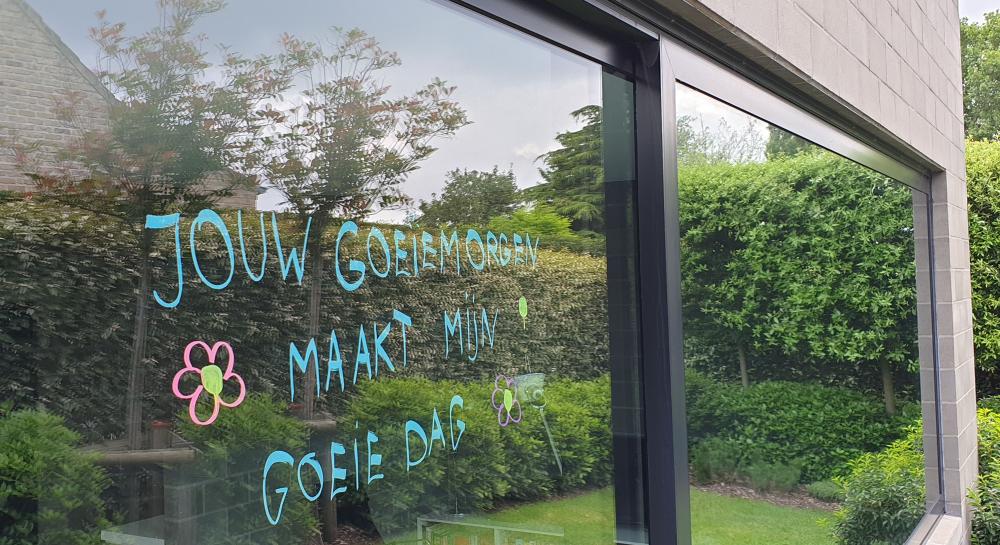 JOUW GOEIEMORGEN
MAAKT MIJN
GOEIE DAG